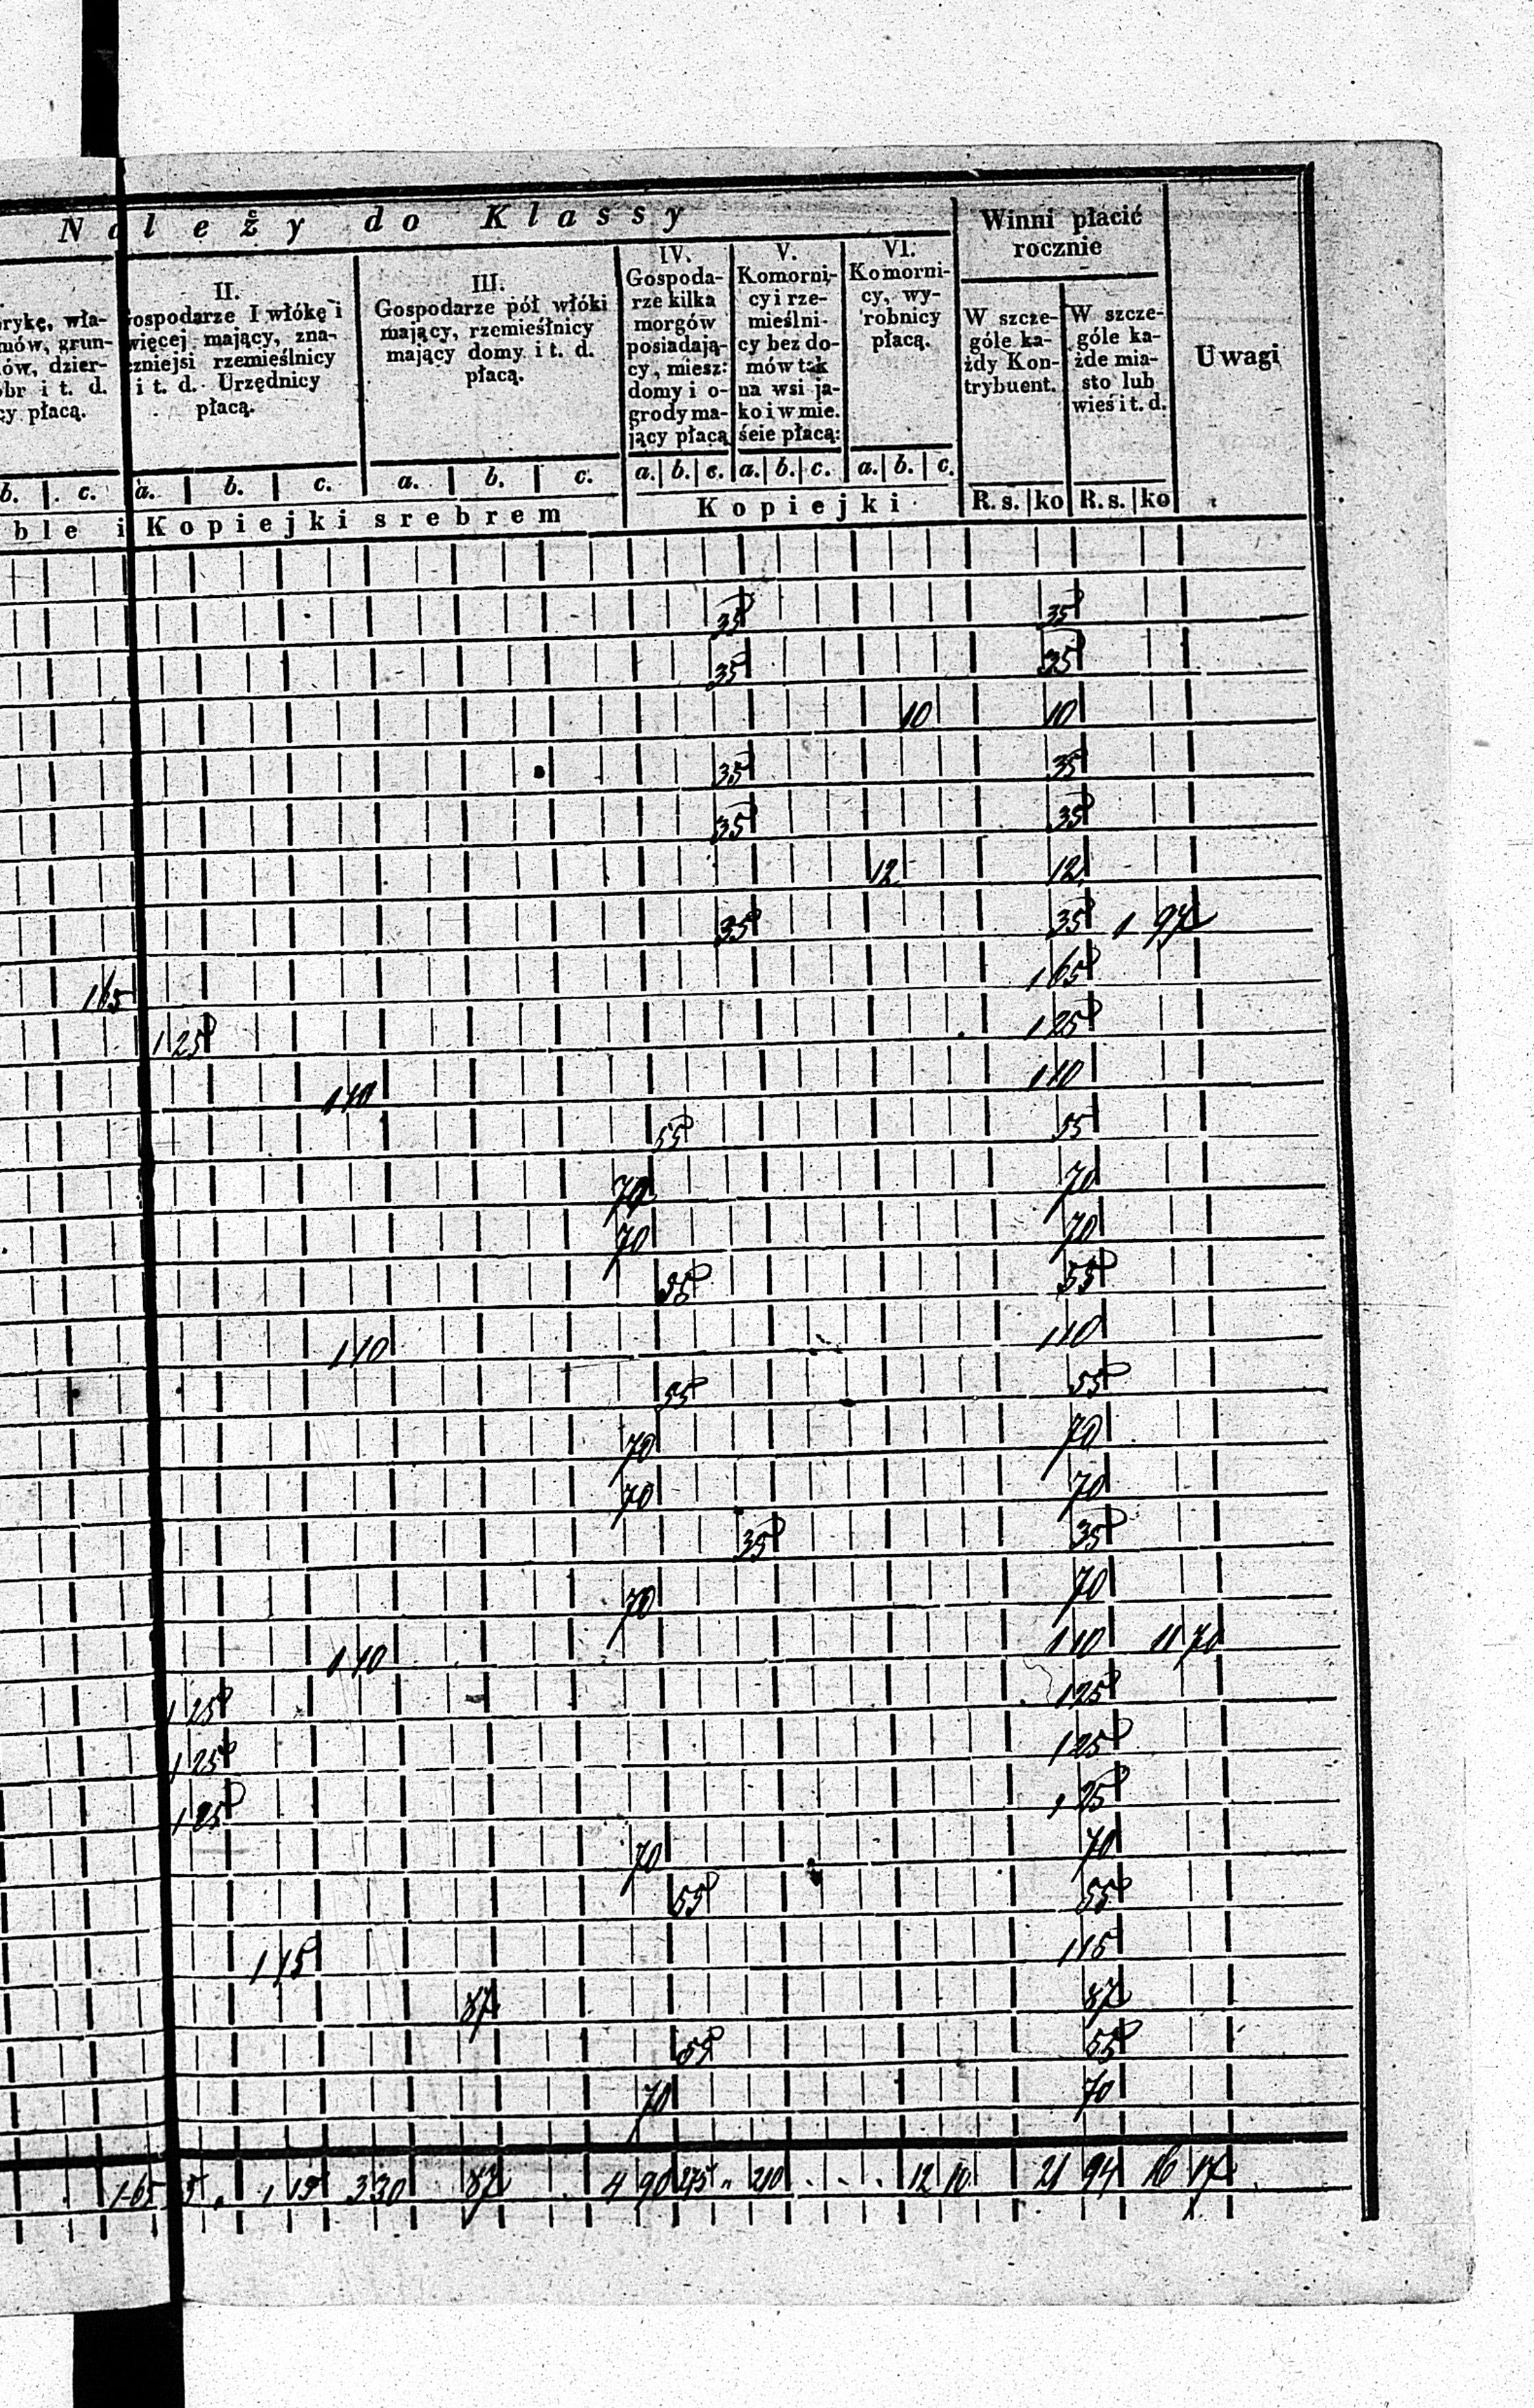 Należy do Klassy
Winni płacić
rocznie
Uwagi
rykę, wła-
mów, grun-
ów, dzier-
br i t. d.
cy płacą.
II.
ospodarze I włókę i
więcej mający, zna-
czniejsi rzemieślnicy
i t. d. Urzędnicy
płacą.
III.
Gospodarze pół włóki
mający, rzemieślnicy
mający domy i t. d.
płacą.
IV.
Gospoda-
rze kilka
morgów
posiadają-
cy, miesz:
domy i o-
grody ma-
jący płacą
V.
Komorni-
cy i rze-
mieślni-
cy bez do-
mów tak
na wsi ja-
ko i w mie.
ście płacą:
VI.
Komorni-
cy, wy-
robnicy
płacą.
W szcze-
góle ka-
żdy Kon-
trybuent.
W szcze-
góle ka-
żde mia-
sto lub
wieś i t. d.
b. c. a. b. c. a. b. c. a. b. c. a. b. c. a. b. c.
ble i Kopiejki srebrem Kopiejki R. s. ko R. s. ko
35 35
35 35
10 10
35 35
35 35
12 12
35 35 1 97
1 65 1 65
1 25 1 25
1 10 1 10
55 55
70 70
70 70
55 55
1 10 1 10
55 55
70 70
70 70
35 35
70 70
1 10 1 10 11 70
1 25 1 25
1 25 1 25
1 25 1 25
70 70
55 55
1 15 1 15
87 87
55 55
70 70
1 65 5 „ 1 15 3 30 87 4 90 275 „ 210 12 10 21 94 16 17